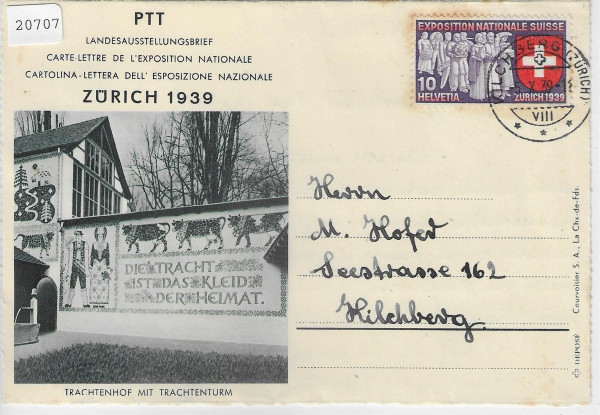 20707
PTT
LANDESAUSSTELLUNGSBRIEF
CARTE-LETTRE DE L'EXPOSITION NATIONALE
CARTOLINA-LETTERA DELL' ESPOSIZIONE NAZIONALE
ZÜRICH 1939
EXPOSITION NATIONALE SUISSE
10
HELVETIA
ZÜRICH 1939
KILCHBERG (ZÜRICH)
VIII
DIE TRACHT
IST DAS KLEID
DER HEIMAT.
TRACHTENHOF MIT TRACHTENTURM
Herrn
M. Hofer
Seestrasse 162
Kilchberg
Courvoisier S. A., La Chx-de-Fds.
DEPOSÉ